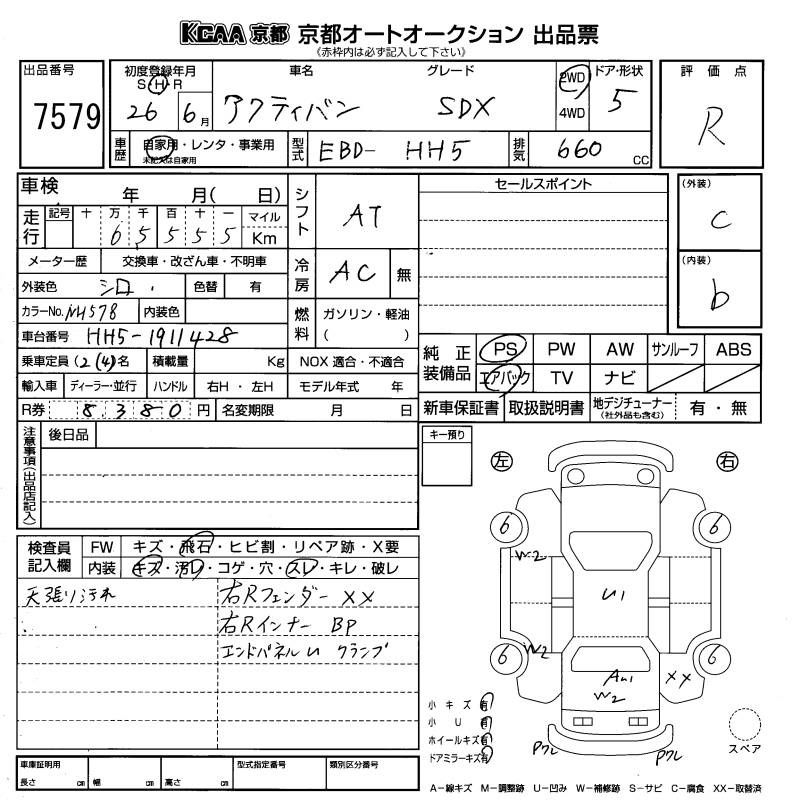 KCAA 京都 京都オートオークション 出品票
《赤枠内は必ず記入して下さい》
出品番号
7579
初度登録年月
S・H・R
26 6月
車名
アクティバン
グレード
SDX
2WD
4WD
ドア・形状
5
評価点
R
車歴
自家用・レンタ・事業用
未記入は自家用
型式
EBD- HH5
排気
660 CC
車検 年 月( 日)
走行
記号 十 万 千 百 十 一 マイル
6 5 5 5 5 Km
メーター歴 交換車・改ざん車・不明車
外装色 シロ. 色替 有
カラーNo. NH578 内装色
車台番号 HH5-1911428
乗車定員 (2(4)名 積載量 Kg NOX 適合・不適合
輸入車 ディーラー・並行 ハンドル 右H ・ 左H モデル年式 年
R券 8,380 円 名変期限 月 日
シフト AT
冷房 AC 無
燃料 ガソリン・軽油
( )
セールスポイント
(外装)
C
(内装)
b
純正装備品
PS PW AW サンルーフ ABS
エアバック TV ナビ
新車保証書 取扱説明書 地デジチューナー
(社外品も含む) 有 ・ 無
注意事項(出品店記入)
後日品
キー預り
左 右
検査員記入欄
FW キズ・飛石・ヒビ割・リペア跡・X要
内装 キズ・汚れ・コゲ・穴・スレ・キレ・破レ
天張り汚れ
右Rフェンダー XX
右Rインナー BP
エンドパネル U クランプ
6 6
W2
U1
6 6
W2
AU1
W2
XX
Pワレ Pワレ
小キズ 有
小U 有
ホイールキズ 有
ドアミラーキズ 有
スペア
車庫証明用
長さ cm 幅 cm 高さ cm
型式指定番号
類別区分番号
A-線キズ M-調整跡 U-凹み W-補修跡 S-サビ C-腐食 XX-取替済